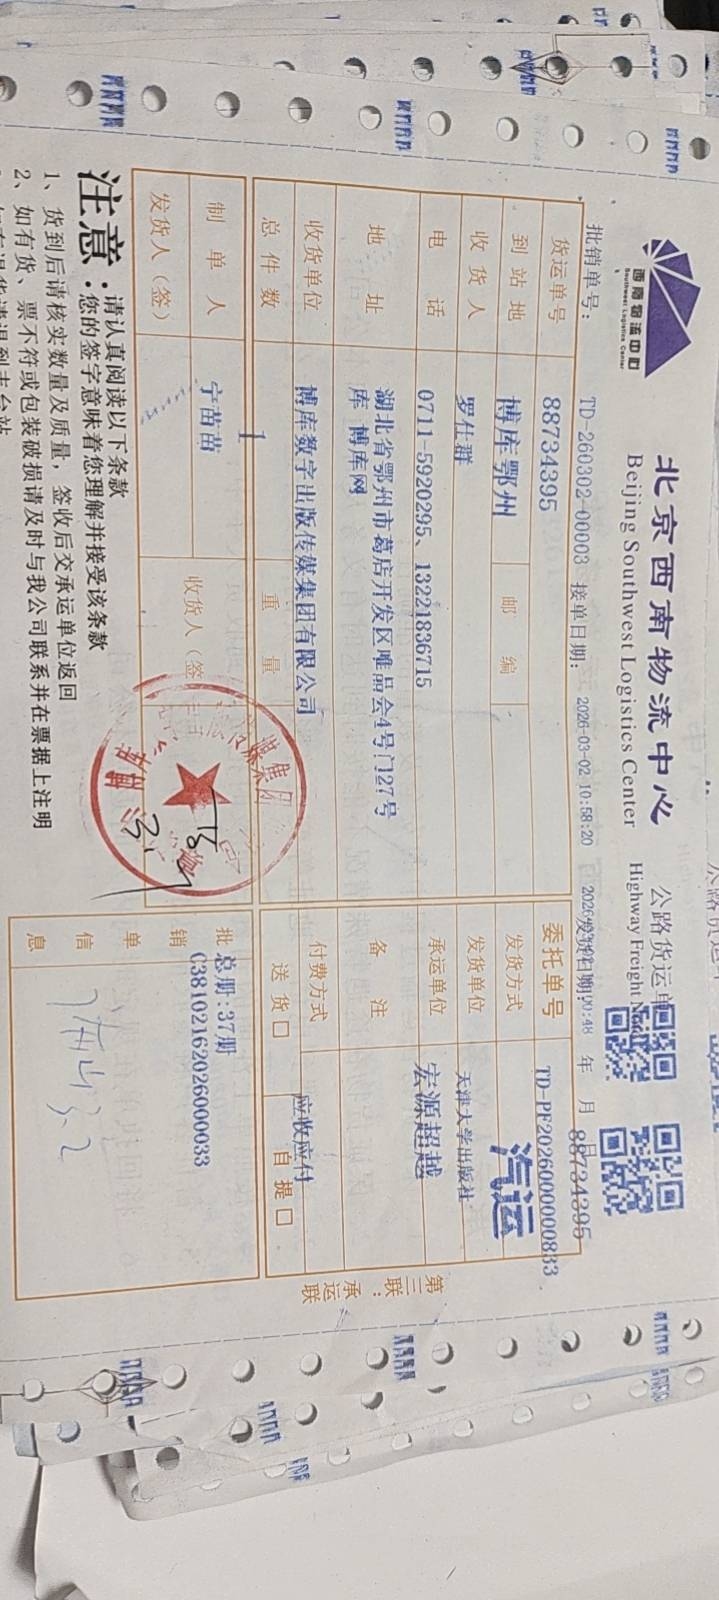 西南物流中心
Southwest Logistics Center
北京西南物流中心
Beijing Southwest Logistics Center
公路货运单
Highway Freight
批销单号: TD-260302-00003 接单日期: 2026-03-02 10:58:20
年 月 日
88734395
货运单号 88734395
委托单号 TD-PF2026000000833
到站地 博库鄂州 邮编
发货方式 汽运
收货人 罗仕群
发货单位 天津大学出版社
电话 0711-5920295、13221836715
承运单位 宏源超越
地址 湖北省鄂州市葛店开发区唯品会4号门27号
库 博库网
备注
收货单位 博库数字出版传媒集团有限公司
付费方式 应收应付
总件数 1 重量
送货□ 自提□
制单人 宁苗苗
收货人(签
发货人(签)
批销单信息
总册:37册
C3810216202600033
第三联:承运联
注意:
请认真阅读以下条款
您的签字意味着您理解并接受该条款
1、货到后请核实数量及质量,签收后交承运单位返回
2、如有货、票不符或包装破损请及时与我公司联系并在票据上注明